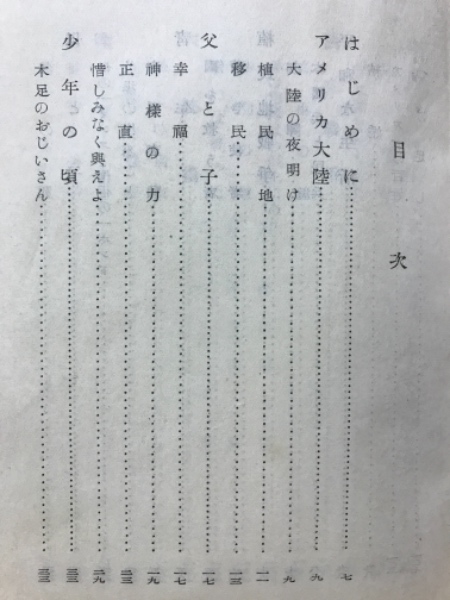 目次
はじめに……七
アメリカ大陸……九
大陸の夜明け……九
植民地……一一
移民……一三
父と子……一七
幸福……一七
神様の力……一九
正直……二三
惜しみなく與えよ……二九
少年の頃……三三
木足のおじいさん……三三